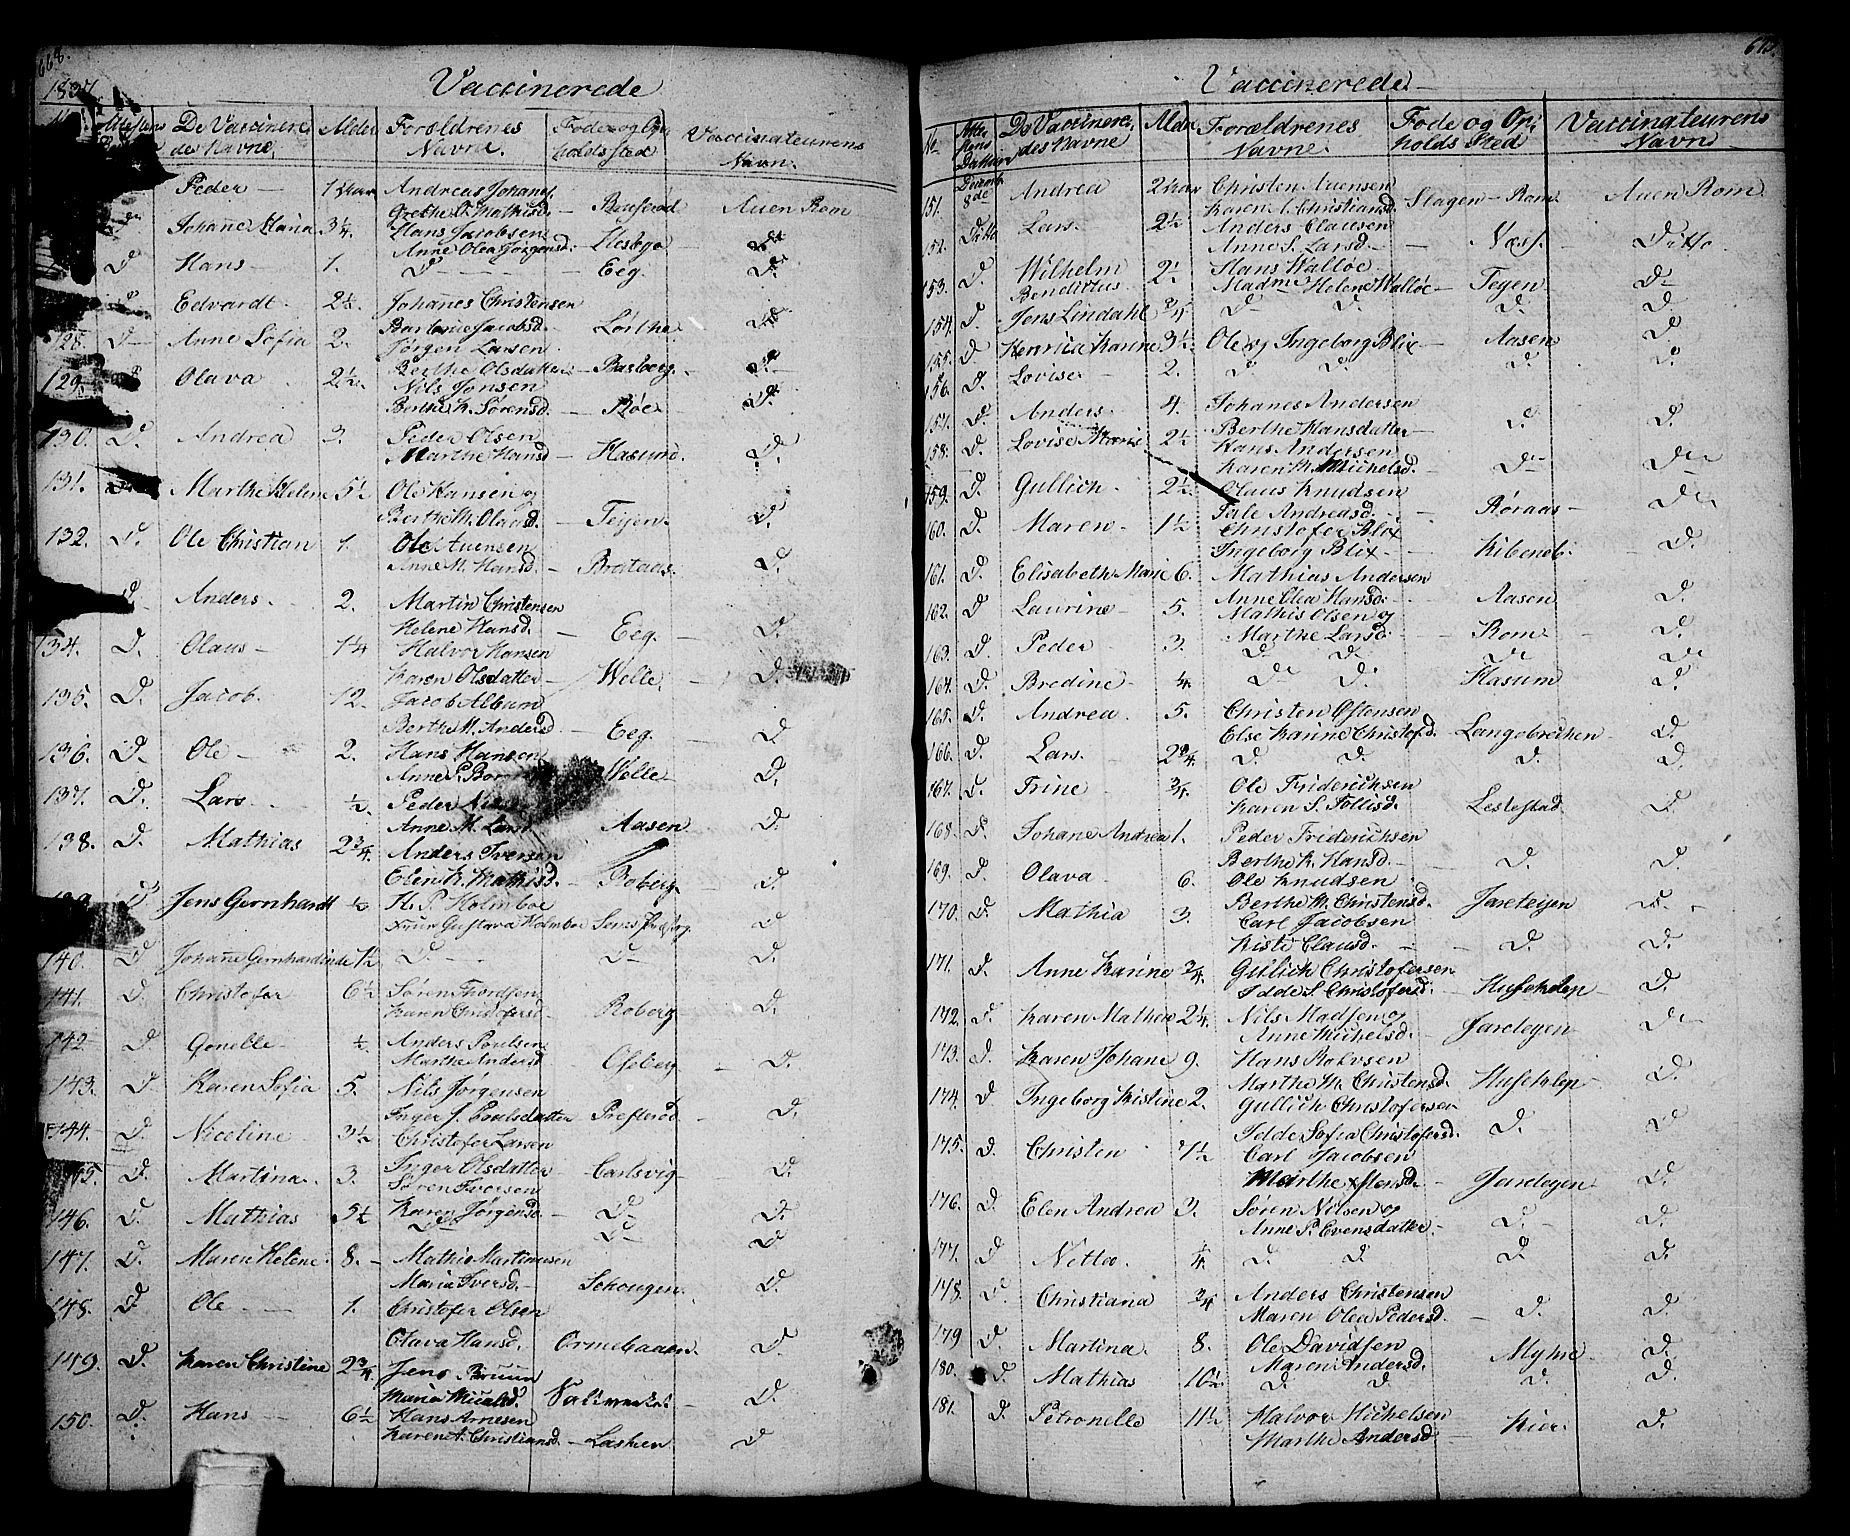 668.
1837
Vaccinerede
De Vaccinere-
des Navne.
Alder
Forældrenes
Navne.
Føde og Op-
holdssted
Vaccinateurens
Navn.
Peder - 1 Aar Andreas Johans
Grethe O. Mathisd. - Auen Rom
Johanne Maria 3/4. Hans Jacobsen
Anne Olea Jørgensd. -
D. Hans - 1. D - Eeg. D.
D Edvardt. 2½. Johannes Christensen
Jacobsd. - D
128. D Anne Sofia 2. Jørgen Larsen
Berthe Olsdatter - Basberg. - D
129. D Olava 2½. Nils Jonsen
Berthe K. Sørensd - Røe. D.
130. D. Andrea 3. Peder Olsen
Marthe Hansd - Hasund. D.
131. Marthe Helene 5½ Ole Hansen og
Berthe M. Olausd. - Teijen. D.
132. D. Ole Christian 1. Ole Auensen
Anne M. Hansd. - Brataas. D.
D Anders. 2. Martin Christensen
Helene Hansd. - Eeg. - D.
134. D. Olaus - 1¼ Halvor Hansen
Karen Olsdatter - Wølle. D.
135. D. Jacob. 12. Jacob Album
Berthe M. Andersd Eeg. D
136. D. Ole - 2. Hans Hansen
Anne P. Wølle - D.
137. D. Lars. ½. Peder
Anne M. Larsd Aasen D.
138. D. Mathias 2¾. Anders Iversen
Elen K. Mathisd. - Roberg. D.
139. D Jens Gernhardt ½ H. P. Holmboe
Frue Gustava Holmboe D
140. D Johanne Gernhardine 1½ D. D - D.
141. D. Christofer 6½ Søren Thordsen
Karen Christofersd. Roberg D.
142 D. Gonelle - ½. Anders Poulsen
Marthe Andersd Ofsberg D.
143. D Karen Sofia 5. Nils Jørgensen
Inger J. Poulsdatter Presterød D.
144. D. Nicoline 3½ Christofer Larsen
Inger Olsdatter - Carlsvig D.
145. D. Martina. 3. Søren Iversen
Karen Jørgensd. D D.
146. D. Mathias 5½ D D - D
147. D. Maren Helene. 8. - Mathis Martinusen
Maria Iversd. Schougen. D.
148. D. Ole - 1. Christofer Olsen
Olava Hansd. Ormelaaen. D
149. D. Karen Christine 2¾ Jens Bruun
Maria D.
150. D. Hans 6½ Hans Arnesen
Karen A. Christiansd. - Lasken D
Vaccinerede
No
Attes-
tens
Datum
De Vaccinere-
des Navne
Alder
Forældrenes
Navne.
Føde og Op-
holds Sted
Vaccinateurens
Navn
151. Decemb. 8de Andrea 2½ Aar Christen Auensen
Karen A. Christiansd. Slagen - Rom. Auen Rom
152. Ditto Lars. 2½ Anders Clausen
Anne S. Larsd. - Næss. Ditto.
153. D. Wilhelm
Bendictus. 2½. Hans Walløe
Madme Helene Walløe - Tegen - D.
154. D. Jens Lindahl 3/4 D D. D. D
155. D Henrica Karine 3½. Ole og Ingeborg Blix - Aasen D
156. D. Lovise - 2. D D. D. D.
157. D. Anders. 4. Johanes Andersen
Berthe Hansdatter - D D.
158. D. Lovise Marie 2½ Hans Andersen
Karen M. Michelsd. D D
159. D. Gullich. 2½. Olaus Knudsen
Tale Andreasd. - Røraas - D
160. D. Maren - 1½ Christofer Blix
Ingeborg Blix - D.
161. D. Elisabeth Marie 6. Mathias Andersen
Anne Elea Hansd. - Aasen D
162. D Laurine - 5. Mathis Olsen og
Marthe Larsd. - Rom. D.
163. D. Peder 3. D D. D D
164. D. Bredine - ¼. D D. Hasum D.
165. D. Andrea. 5. Christen Ostensen
Else Karine Christofd. Langobrekken - D.
166. D. Lars. 2¾. D. D. D. D.
167. D. Trine. ¾. Ole Friderichsen
Karen S. Tollisd. Lestestad. D
168. D. Johane Andrea 1. Peder Friderichsen
Berthe K. Hansd. - D. D.
169. D. Olava 6. Ole Knudsen
Berthe M. Christensd. Jareteijen D. -
170. D. Mathia 3. Carl Jacobsen
Kiste Clausd. - D. D.
171. D. Anne Karine ¾ Gullich Christofersen
Idde S. Christofersd. - Huseklep - D.
172. D. Karen Mathea 2¼. Nils Madsen og
Anne Michelsd. Jarelegen D -
173. D. Karen Johane 9. Hans Rolvsen
Marthe M. Christensd. Huseklep - D.
174. D Ingeborg Kistine 2. Gullich Christofersen
Idde Sofia Christofersd. D. - D
175. D. Christen 7½ Carl Jacobsen
Marthe - Jarelegen D.
176. D. Elen Andrea 3. Søren Nilsen og
Anne P. Evensdatter. - D. - D.
177. D Nettea ¼ D. D. D D.
178. D. Christiana ¾ Anders Christensen
Maren Olea Pedersd. - D. D.
179 D. Martina. 8. Ole Davidsen
Maren Andersd. Myhre D.
180. D. Mathias 10½ D. D. D. D.
181. D. Petronelle 11½ Halvor Michelsen
Marthe Andersd. - Kier. D.